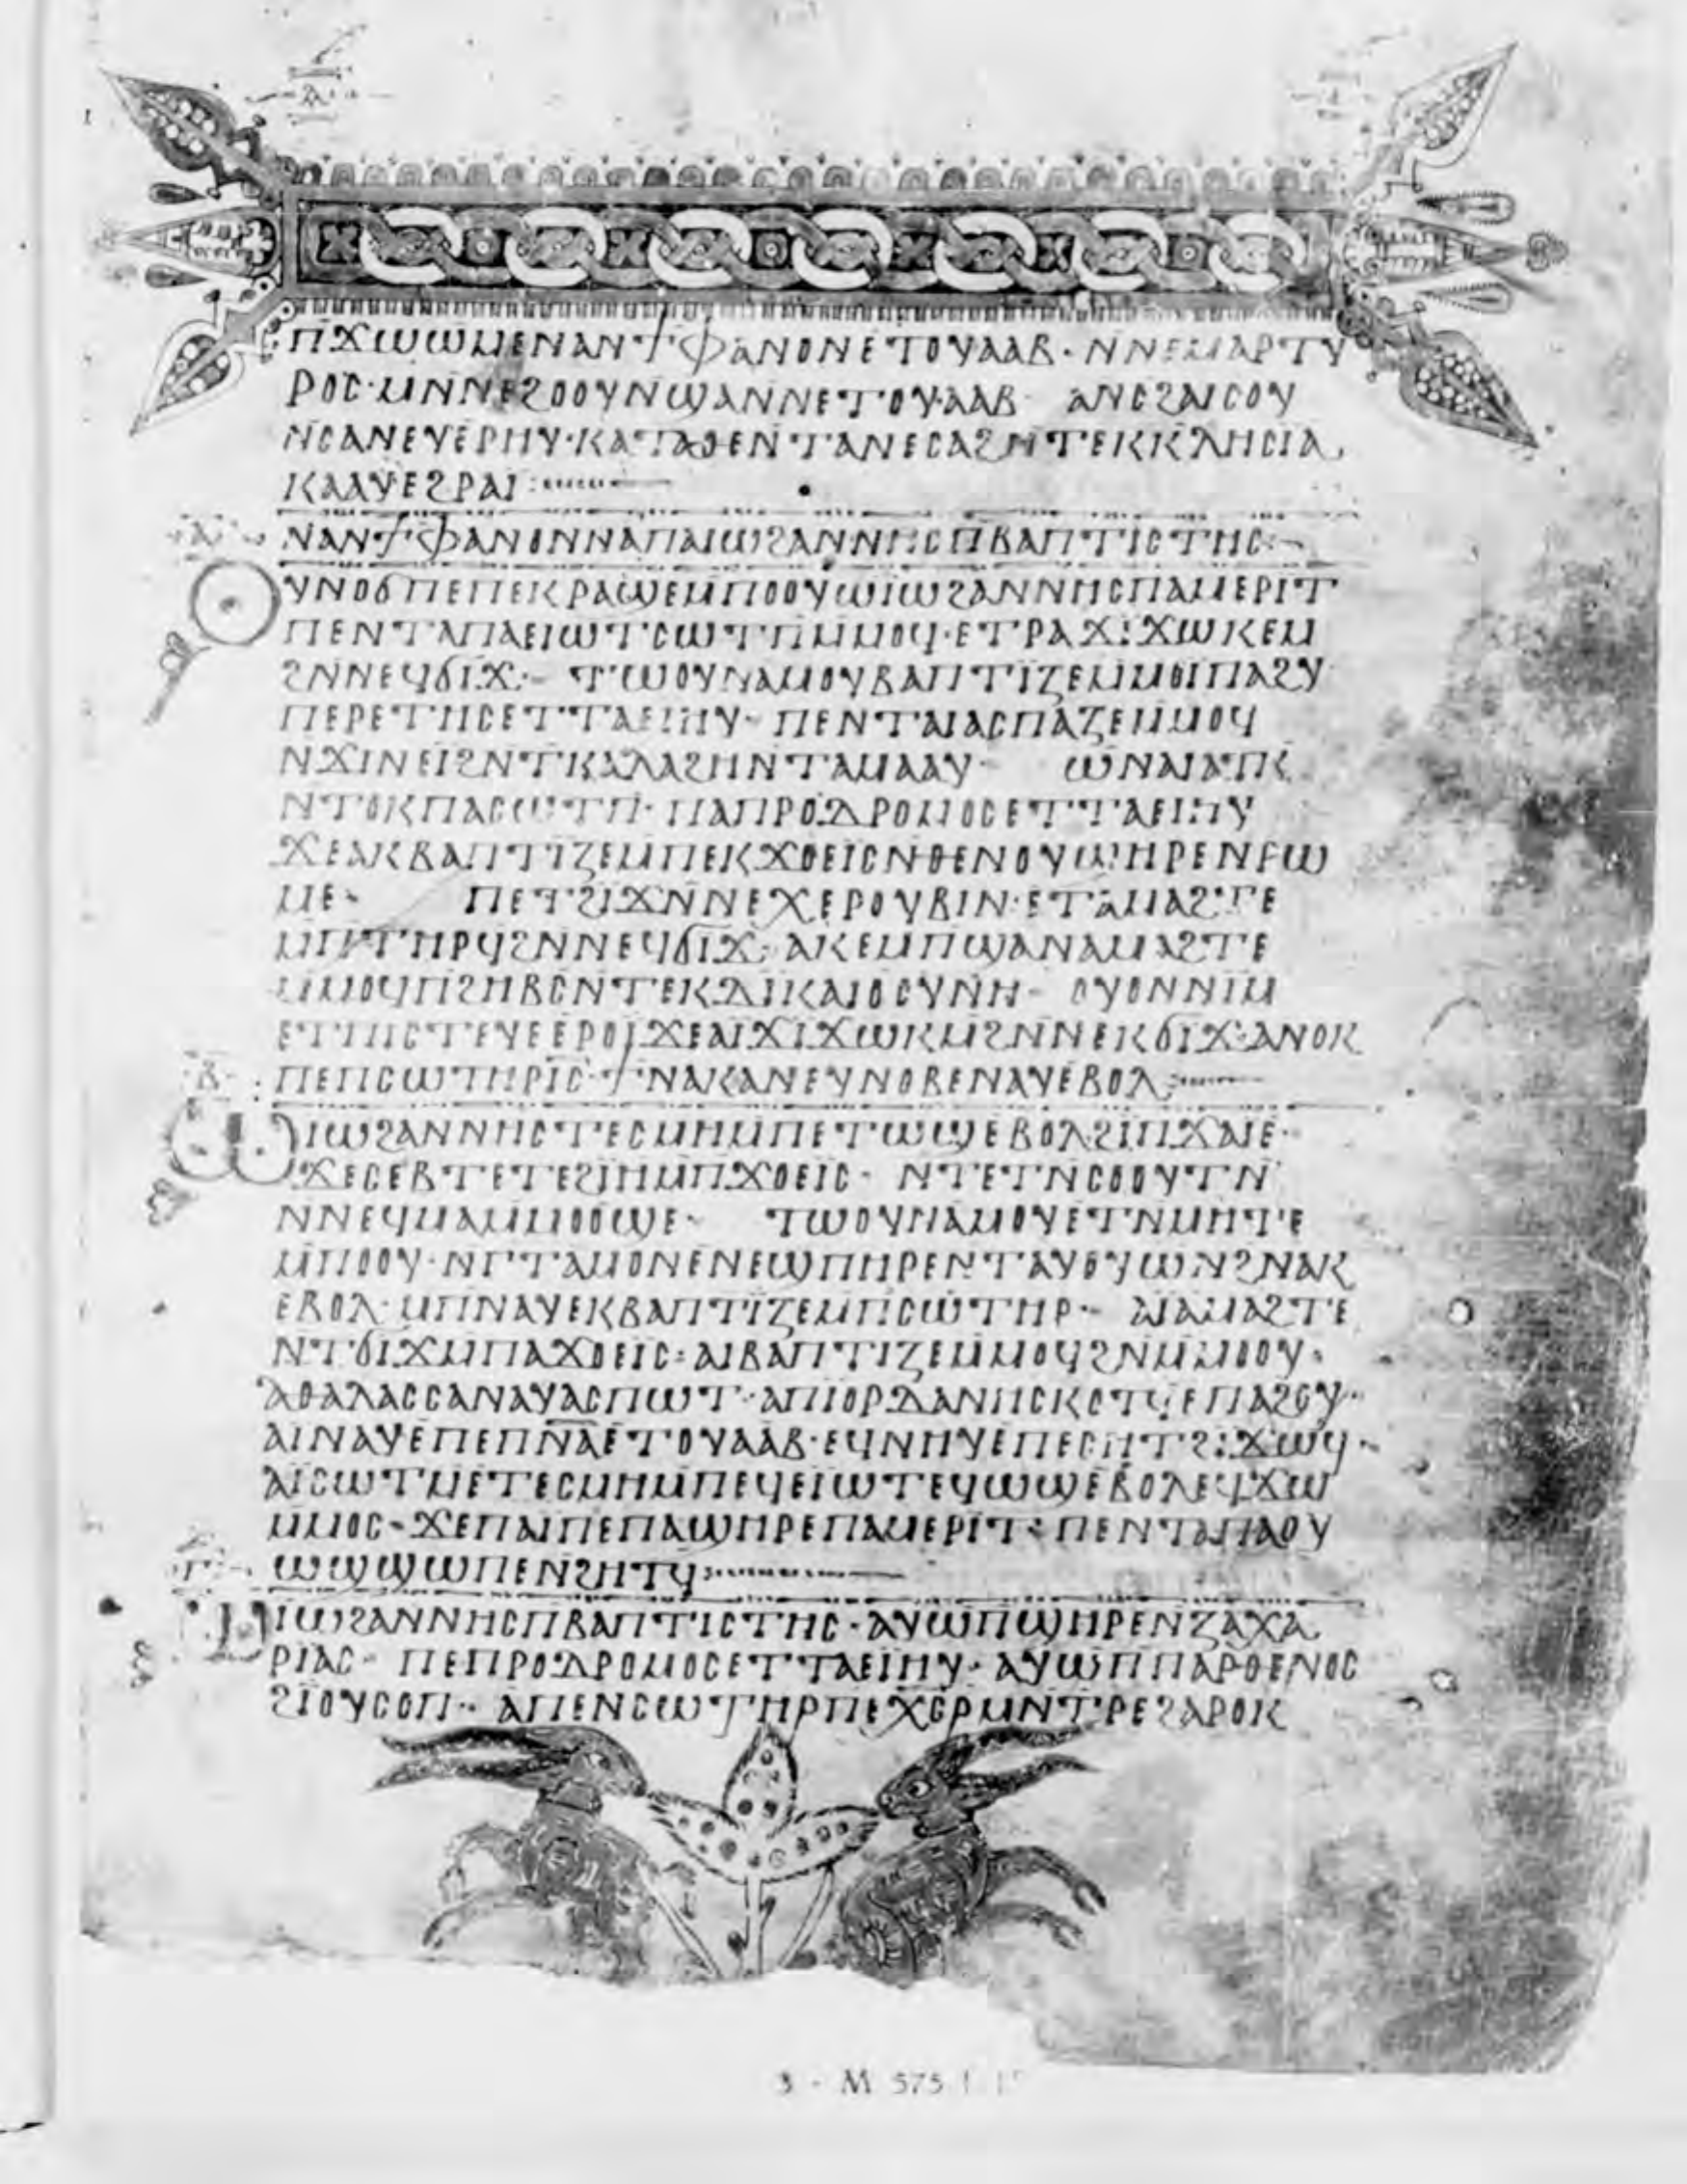 ⲡϫⲱⲱⲙⲉⲛⲁⲛϯⲫⲁⲛⲟⲛⲉⲧⲟⲩⲁⲁⲃ· ⲛⲛⲉⲙⲁⲣⲧⲩ
ⲣⲟⲥ·ⲙⲛⲛⲉϩⲟⲟⲩⲛϣⲁⲛⲛⲉⲧⲟⲩⲁⲁⲃ· ⲁⲛⲥϩⲁⲓⲥⲟⲩ
ⲛⲥⲁⲛⲉⲩⲉⲣⲏⲩ·ⲕⲁⲧⲁⲑⲉⲛⲧⲁⲛⲉⲥⲁϩⲛⲧⲉⲕⲕⲗⲏⲥⲓⲁ
ⲕⲁⲁⲩⲉϩⲣⲁⲓ
ⲁ
ⲛⲁⲛϯⲫⲁⲛⲟⲛⲛⲁⲡⲁⲓⲱϩⲁⲛⲛⲏⲥⲡⲃⲁⲡⲧⲓⲥⲧⲏⲥ
ⲟⲩⲛⲟϭⲡⲉⲡⲉⲕⲣⲁϣⲉⲙⲡⲟⲟⲩⲱⲓⲱϩⲁⲛⲛⲏⲥⲡⲁⲙⲉⲣⲓⲧ
ⲡⲉⲛⲧⲁⲡⲁⲉⲓⲱⲧⲥⲱⲧⲡⲙⲙⲟϥ·ⲉⲧⲣⲁϫⲓϫⲱⲕⲉⲙ
ϩⲛⲛⲉϥϭⲓϫ·– ⲧⲱⲟⲩⲛⲁⲙⲟⲩⲃⲁⲡⲧⲓⲍⲉⲙⲙⲟⲓⲡⲁϩⲩ
ⲡⲉⲣⲉⲧⲏⲥⲉⲧⲧⲁⲉⲓⲏⲩ– ⲡⲉⲛⲧⲁⲓⲁⲥⲡⲁⲍⲉⲙⲙⲟϥ
ⲛϫⲓⲛⲉⲓϩⲛⲧⲕⲁⲗⲁϩⲏⲛⲧⲁⲙⲁⲁⲩ– ⲱⲛⲁⲓⲁⲧⲕ
ⲛⲧⲟⲕⲡⲁⲥⲱⲧⲡ· ⲡⲁⲡⲣⲟⲇⲣⲟⲙⲟⲥⲉⲧⲧⲁⲉⲓⲏⲩ
ϫⲉⲁⲕⲃⲁⲡⲧⲓⲍⲉⲙⲡⲉⲕϫⲟⲉⲓⲥⲛⲑⲉⲛⲟⲩϣⲏⲣⲉⲛⲣⲱ
ⲙⲉ– ⲡⲉⲧϩⲓϫⲛⲛⲉⲭⲉⲣⲟⲩⲃⲓⲛ·ⲉⲧⲁⲙⲁϩⲧⲉ
ⲙⲡⲧⲏⲣϥϩⲛⲛⲉϥϭⲓϫ· ⲁⲕⲉⲙⲡϣⲁⲛⲁⲙⲁϩⲧⲉ
ⲙⲙⲟϥⲡϩⲏⲃⲥⲛⲧⲉⲕⲇⲓⲕⲁⲓⲟⲥⲩⲛⲏ– ⲟⲩⲟⲛⲛⲓⲙ
ⲉⲧⲡⲓⲥⲧⲉⲩⲉⲉⲣⲟⲓϫⲉⲁⲓϫⲓϫⲱⲕⲙϩⲛⲛⲉⲕϭⲓϫ·ⲁⲛⲟⲕ
ⲡⲉⲡⲥⲱⲧⲏⲣⲓⲥ·ϯⲛⲁⲕⲁⲛⲉⲩⲛⲟⲃⲉⲛⲁⲩⲉⲃⲟⲗ
ⲃ
ⲱⲓⲱϩⲁⲛⲛⲏⲥⲧⲉⲥⲙⲏⲙⲡⲉⲧⲱϣⲉⲃⲟⲗϩⲓⲡϫⲁⲓⲉ·
ϫⲉⲥⲉⲃⲧⲉⲧⲉϩⲓⲏⲙⲡϫⲟⲉⲓⲥ– ⲛⲧⲉⲧⲛⲥⲟⲟⲩⲧⲛ
ⲛⲛⲉϥⲙⲁⲙⲙⲟⲟϣⲉ– ⲧⲱⲟⲩⲛⲁⲙⲟⲩⲉⲧⲛⲙⲏⲧⲉ
ⲙⲡⲟⲟⲩ·ⲛⲅⲧⲁⲙⲟⲛⲉⲛⲉϣⲡⲏⲣⲉⲛⲧⲁⲩⲟⲩⲱⲛϩⲛⲁⲕ
ⲉⲃⲟⲗ·ⲙⲡⲛⲁⲩⲉⲕⲃⲁⲡⲧⲓⲍⲉⲙⲡⲥⲱⲧⲏⲣ– ⲁⲓⲁⲙⲁϩⲧⲉ
ⲛⲧϭⲓϫⲙⲡⲁϫⲟⲉⲓⲥ·ⲁⲓⲃⲁⲡⲧⲓⲍⲉⲙⲙⲟϥϩⲛⲙⲙⲟⲟⲩ·
ⲁⲑⲁⲗⲁⲥⲥⲁⲛⲁⲩⲁⲥⲡⲱⲧ·ⲁⲡⲓⲟⲣⲇⲁⲛⲏⲥⲕⲟⲧϥⲉⲡⲁϩⲟⲩ·
ⲁⲓⲛⲁⲩⲉⲡⲉⲡⲛ̅ⲁ̅ⲉⲧⲟⲩⲁⲁⲃ·ⲉϥⲛⲏⲩⲉⲡⲉⲥⲏⲧϩⲓϫⲱϥ·
ⲁⲓⲥⲱⲧⲙⲉⲧⲉⲥⲙⲏⲙⲡⲉϥⲉⲓⲱⲧⲉϥⲱϣⲉⲃⲟⲗⲉϥϫⲱ
ⲙⲙⲟⲥ–ϫⲉⲡⲁⲓⲡⲉⲡⲁϣⲏⲣⲉⲡⲁⲙⲉⲣⲓⲧ·ⲡⲉⲛⲧⲁⲡⲁⲟⲩ
ⲱϣϣⲱⲡⲉⲛϩⲏⲧϥ
ⲅ
ⲱⲓⲱϩⲁⲛⲛⲏⲥⲡⲃⲁⲡⲧⲓⲥⲧⲏⲥ·ⲁⲩⲱⲡϣⲏⲣⲉⲛⲍⲁⲭⲁ
ⲣⲓⲁⲥ– ⲡⲉⲡⲣⲟⲇⲣⲟⲙⲟⲥⲉⲧⲧⲁⲉⲓⲏⲩ·ⲁⲩⲱⲡⲡⲁⲣⲑⲉⲛⲟⲥ
ϩⲓⲟⲩⲥⲟⲡ·· ⲁⲡⲉⲛⲥⲱⲧⲏⲣⲡⲉⲭ̅ⲥ̅ⲣⲙⲛⲧⲣⲉϩⲁⲣⲟⲕ
M 575